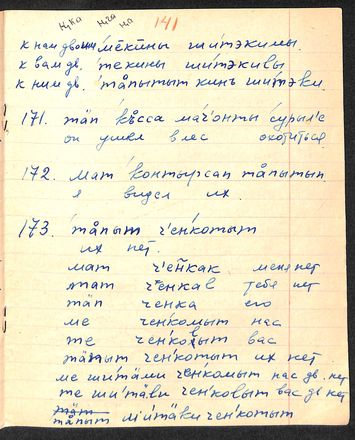 н,ка н,га на 141
к нам двоим ме̄кины шитэкимы.
к вам дв. те̄кины шитэкивы
к ним дв. та̊пытыт кинъ шитэки.
171. тӓп къ̊сса ма̄ч'онты сурыл'е
он ушел в лес охотиться
172. мат контырсап та̊пытып
я видел их.
173. та̊пыт ч'еӈкотыт
их нет.
мат ч'еӈкак меня нет
тат ч'енкав тебя нет
тӓп ченка его
ме ченкомыт нас
те ченковыт вас
та̊пыт ченкотыт их нет
ме шитӓми ченкомыт нас дв. нет
те шитӓви ченковыт вас дв нет
тӓт
та̊пыт шитӓви ченкотыт